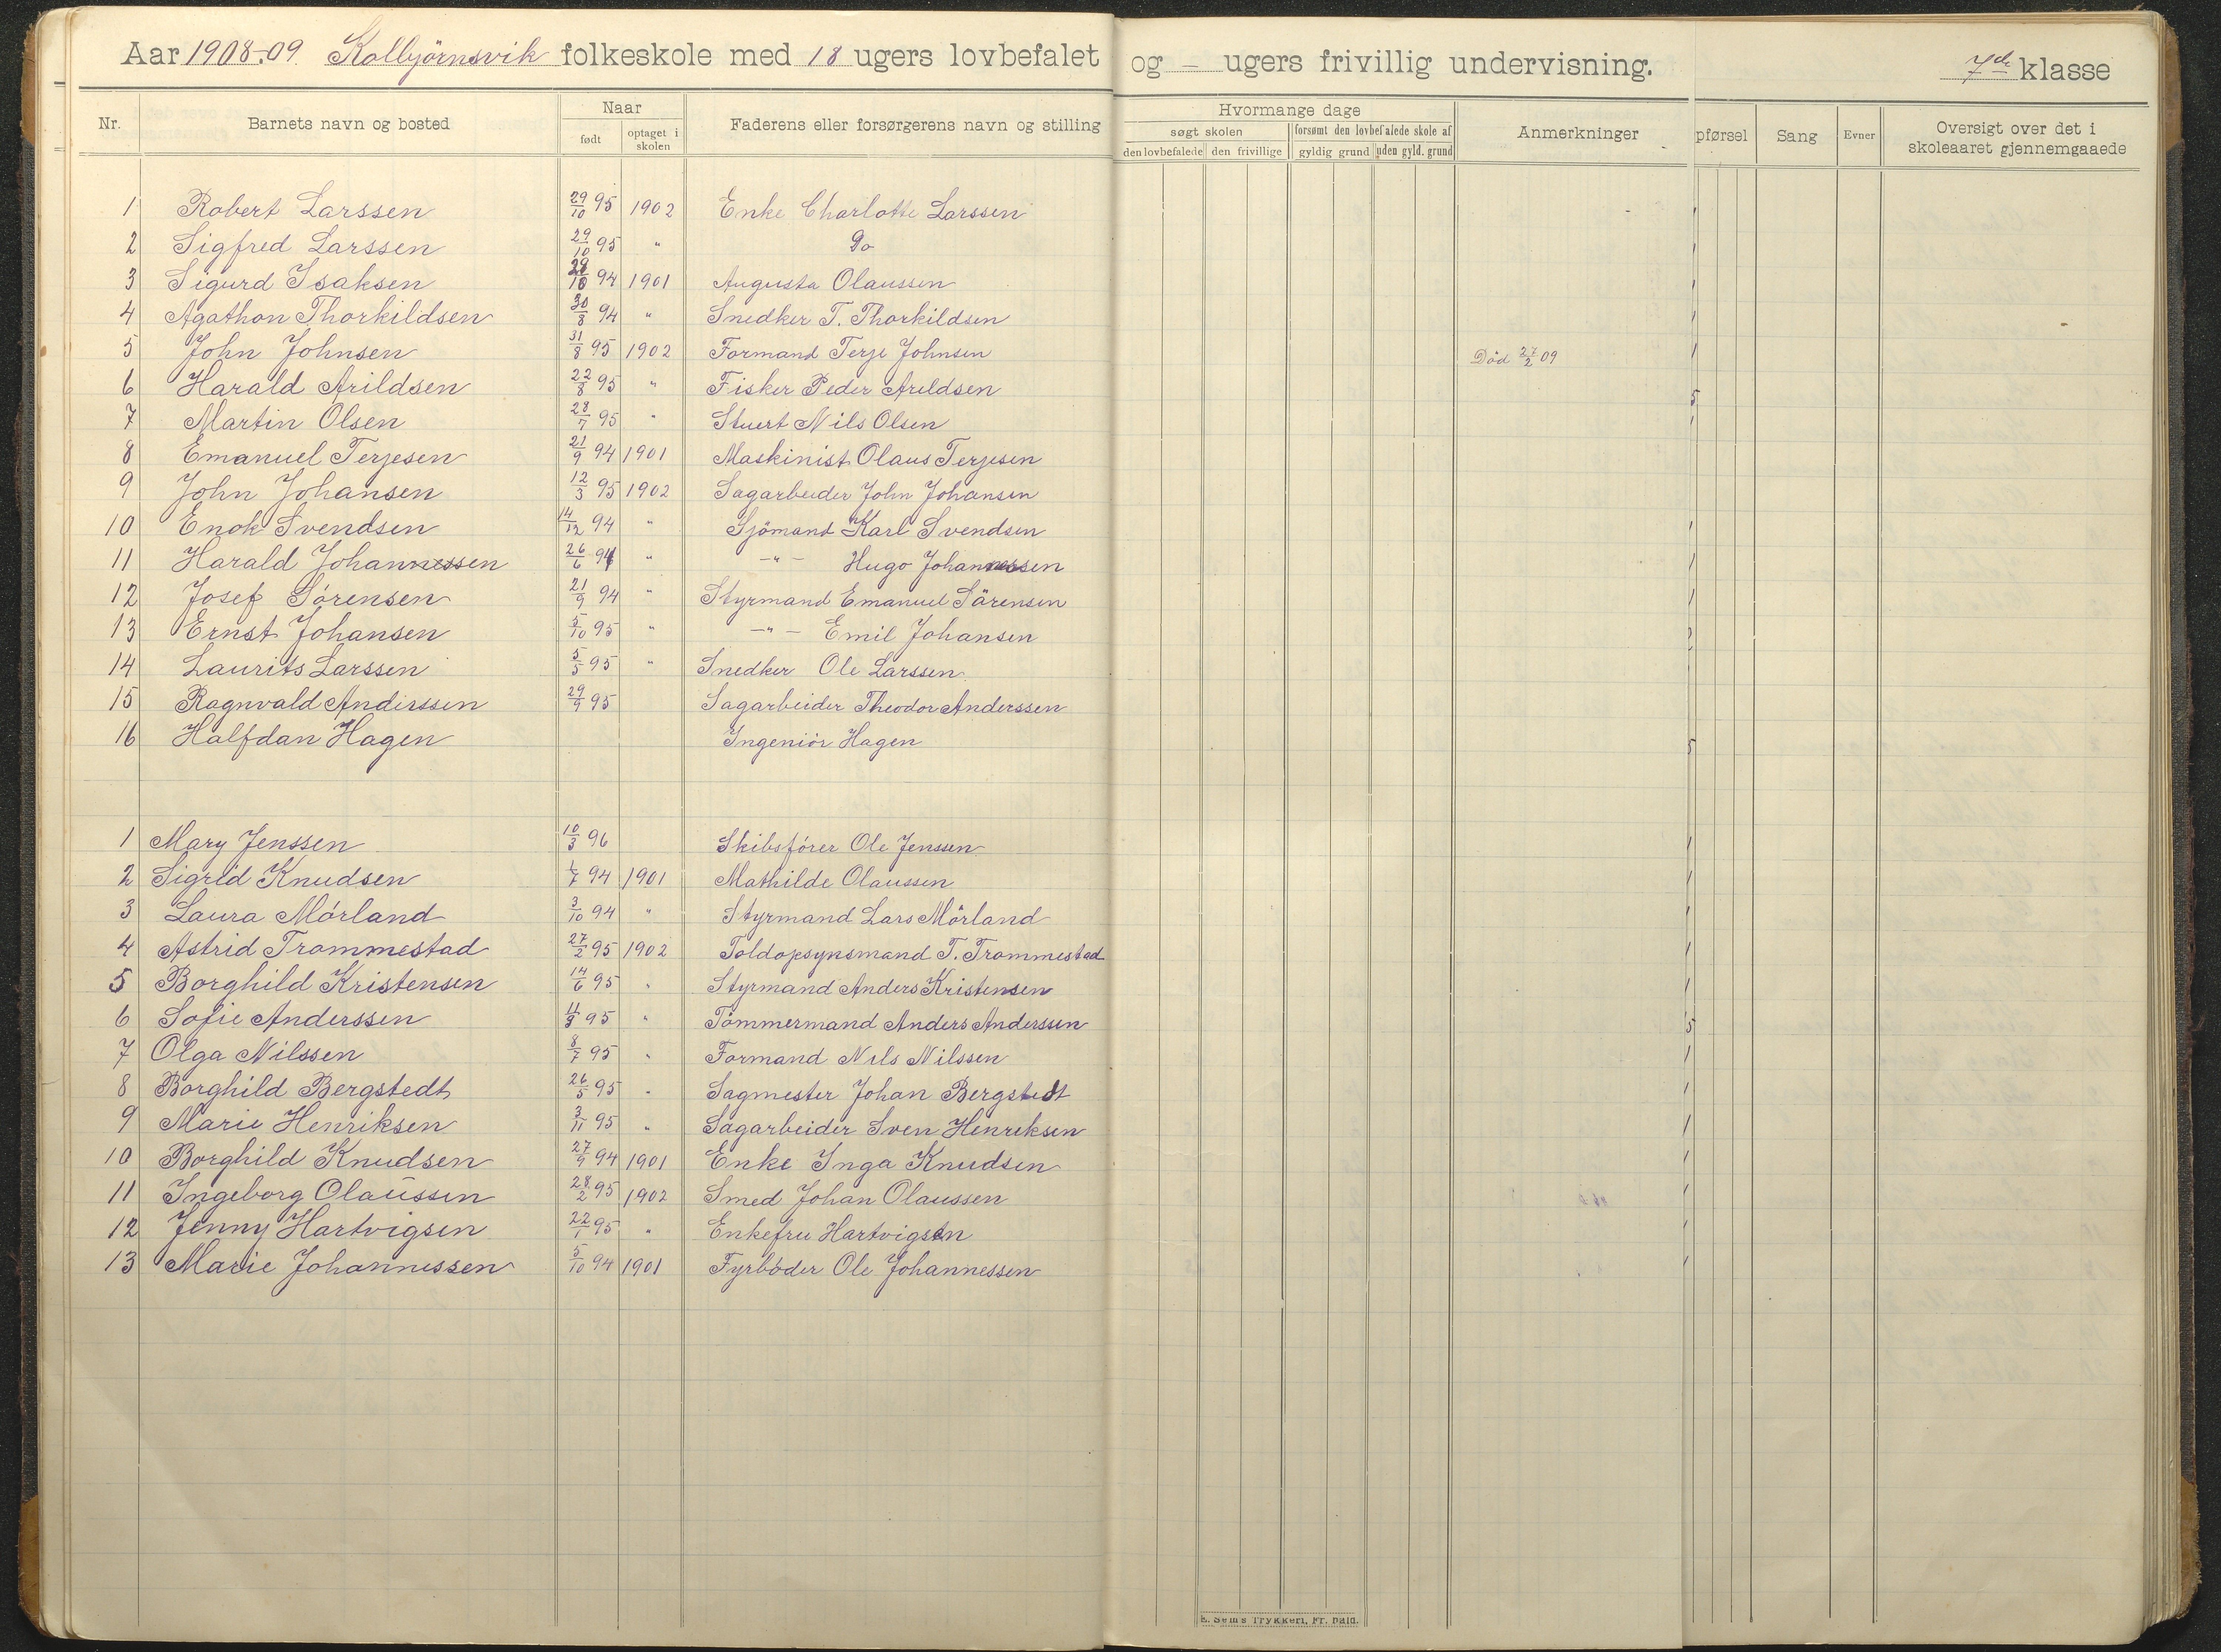 Aar 1908-09. Kolbjörnsvik folkeskole med 18 ugers lovbefalet og - ugers frivillig undervisning. 7de klasse
Nr. Barnets navn og bosted Naar født optaget i skolen Faderens eller forsørgerens navn og stilling Hvormange dage søgt skolen den lovbefalede den frivillige forsømt den lovbefalede skole af gyldig grund uden gyld. grund Anmerkninger pførsel Sang Evner Oversigt over det i skoleaaret gjennemgaaede
1 Robert Larssen 29/10 95 1902 Enke Charlotte Larssen
2 Sigfred Larssen 29/10 95 " Do
3 Sigurd Isaksen 94 1901 Augusta Olaussen
4 Agathon Thorkildsen 30/8 94 " Snedker T. Thorkildsen
5 John Johnsen 31/8 95 1902 Formand Terje Johnsen Död 27/2 09
6 Harald Arildsen 22/8 95 " Fisker Peder Arildsen 5
7 Martin Olsen 28/7 95 " Stuert Nils Olsen
8 Emanuel Terjesen 21/9 94 1901 Maskinist Olaus Terjesen
9 John Johansen 12/3 95 1902 Sagarbeider John Johansen
10 Enok Svendsen 14/12 94 " Sjömand Karl Svendsen
11 Harald Johannessen 26/6 94 " -"- Hugo Johannessen
12 Josef Sörensen 21/9 94 " Styrmand Emanuel Sörensen
13 Ernst Johansen 5/10 95 " -"- Emil Johansen
14 Laurits Larssen 5/5 95 " Snedker Ole Larssen
15 Ragnvald Anderssen 29/9 95 Sagarbeider Theodor Anderssen
16 Halfdan Hagen Ingeniör Hagen 5
1 Mary Jenssen 10/3 96 Skibsförer Ole Jenssen
2 Sigrid Knudsen 1/7 94 1901 Mathilde Olaussen
3 Laura Mörland 3/10 94 " Styrmand Lars Mörland
4 Astrid Trommestad 27/2 95 1902 Toldopsynsmand T. Trommestad
5 Borghild Kristensen 14/6 95 " Styrmand Anders Kristensen
6 Sofie Anderssen 95 " Tömmermand Anders Anderssen 5
7 Olga Nilssen 8/7 95 " Formand Nils Nilssen
8 Borghild Bergstedt 26/5 95 " Sagmester Johan Bergstedt
9 Marie Henriksen 3/11 95 " Sagarbeider Sven Henriksen
10 Borghild Knudsen 27/9 94 1901 Enke Inga Knudsen
11 Ingeborg Olaussen 28/2 95 1902 Smed Johan Olaussen
12 Jenny Hartvigsen 22/1 95 " Enkefru Hartvigsen
13 Marie Johannessen 5/10 94 1901 Fyrböder Ole Johannessen
E. Sem's Trykkeri, Fr. hald.